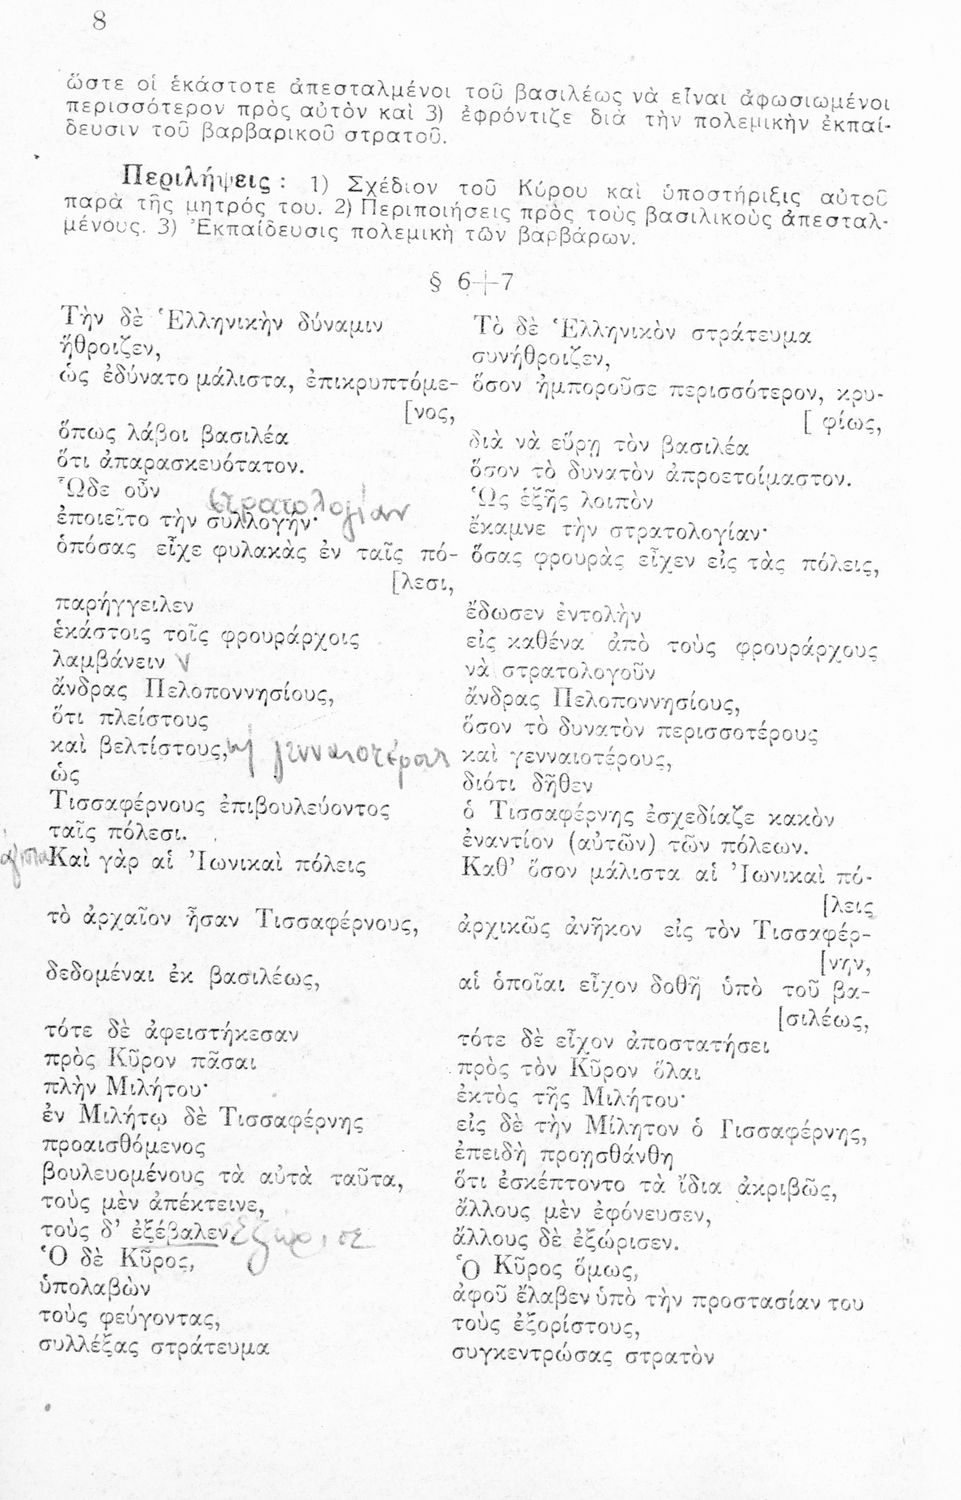 8
ὥστε οἱ ἑκάστοτε ἀπεσταλμένοι τοῦ βασιλέως νὰ εἶναι ἀφωσιωμένοι
περισσότερον πρὸς αὐτὸν καὶ 3) ἐφρόντιζε διὰ τὴν πολεμικὴν ἐκπαί-
δευσιν τοῦ βαρβαρικοῦ στρατοῦ.
Περιλήψεις : 1) Σχέδιον τοῦ Κύρου καὶ ὑποστήριξις αὐτοῦ
παρὰ τῆς μητρός του. 2) Περιποιήσεις πρὸς τοὺς βασιλικοὺς ἀπεσταλ-
μένους. 3) Ἐκπαίδευσις πολεμικὴ τῶν βαρβάρων.
§ 6+7
Τὴν δὲ Ἑλληνικὴν δύναμιν
ἤθροιζεν,
ὡς ἐδύνατο μάλιστα, ἐπικρυπτόμε-
[νος,
ὅπως λάβοι βασιλέα
ὅτι ἀπαρασκευότατον.
Ὧδε οὖν
στρατολογίαν
ἐποιεῖτο τὴν συλλογήν·
ὁπόσας εἶχε φυλακὰς ἐν ταῖς πό-
[λεσι,
παρήγγειλεν
ἑκάστοις τοῖς φρουράρχοις
λαμβάνειν
ἄνδρας Πελοποννησίους,
ὅτι πλείστους
καὶ βελτίστους, γενναιοτέρους
ὡς
Τισσαφέρνους ἐπιβουλεύοντος
ταῖς πόλεσι.
Καὶ γὰρ αἱ Ἰωνικαὶ πόλεις
τὸ ἀρχαῖον ἦσαν Τισσαφέρνους,
δεδομέναι ἐκ βασιλέως,
τότε δὲ ἀφειστήκεσαν
πρὸς Κῦρον πᾶσαι
πλὴν Μιλήτου·
ἐν Μιλήτῳ δὲ Τισσαφέρνης
προαισθόμενος
βουλευομένους τὰ αὐτὰ ταῦτα,
τοὺς μὲν ἀπέκτεινε,
τοὺς δ' ἐξέβαλεν, ἐξώρισε
Ὁ δὲ Κῦρος,
ὑπολαβὼν
τοὺς φεύγοντας,
συλλέξας στράτευμα
Τὸ δὲ Ἑλληνικὸν στράτευμα
συνήθροιζεν,
ὅσον ἠμποροῦσε περισσότερον, κρυ-
[φίως,
διὰ νὰ εὕρῃ τὸν βασιλέα
ὅσον τὸ δυνατὸν ἀπροετοίμαστον.
Ὡς ἑξῆς λοιπὸν
ἔκαμνε τὴν στρατολογίαν·
ὅσας φρουρὰς εἶχεν εἰς τὰς πόλεις,
ἔδωσεν ἐντολὴν
εἰς καθένα ἀπὸ τοὺς φρουράρχους
νὰ στρατολογοῦν
ἄνδρας Πελοποννησίους,
ὅσον τὸ δυνατὸν περισσοτέρους
καὶ γενναιοτέρους,
διότι δῆθεν
ὁ Τισσαφέρνης ἐσχεδίαζε κακὸν
ἐναντίον (αὐτῶν) τῶν πόλεων.
Καθ' ὅσον μάλιστα αἱ Ἰωνικαὶ πό-
[λεις
ἀρχικῶς ἀνῆκον εἰς τὸν Τισσαφέρ-
[νην,
αἱ ὁποῖαι εἶχον δοθῆ ὑπὸ τοῦ βα-
[σιλέως,
τότε δὲ εἶχον ἀποστατήσει
πρὸς τὸν Κῦρον ὅλαι
ἐκτὸς τῆς Μιλήτου·
εἰς δὲ τὴν Μίλητον ὁ Τισσαφέρνης,
ἐπειδὴ προῃσθάνθη
ὅτι ἐσκέπτοντο τὰ ἴδια ἀκριβῶς,
ἄλλους μὲν ἐφόνευσεν,
ἄλλους δὲ ἐξώρισεν.
Ὁ Κῦρος ὅμως,
ἀφοῦ ἔλαβεν ὑπὸ τὴν προστασίαν του
τοὺς ἐξορίστους,
συγκεντρώσας στρατὸν